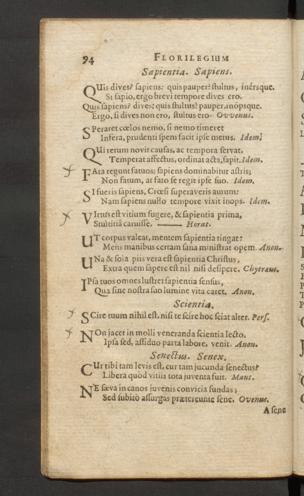 94 FLORILEGIUM
Sapientia. Sapiens.
QUis dives? sapiens: quis pauper? stultus, inersque.
Si sapio, ergo brevi tempore dives ero.
Quis sapiens? dives: quis stultus? pauper, inopsque.
Ergo, si dives non ero, stultus ero. Ovvenus.
SPeraret cœlos nemo, si nemo timeret
Infera, prudenti spem facit ipse metus. Idem.
QUi rerum novit causas, ac tempora servat,
Temperat affectus, ordinat acta, sapit. Idem.
FAta regunt fatuos; sapiens dominabitur astris;
Non fatum, at fato se regit ipse suo. Idem.
SI fueris sapiens, Crœsi superaveris aurum:
Nam sapiens nullo tempore vixit inops. Idem.
VIrtus est vitium fugere, & sapientia prima,
Stultitiâ caruisse. —— Horat.
UT corpus valeat, mentem sapientia tingat:
Mens manibus certam sana ministrat opem. Anon.
UNa & sola piis vera est sapientia Christus,
Extra quem sapere est nil nisi desipere. Chytræus.
IPsa tuos omnes lustret sapientia sensus,
Qua sine nostra suo lumine vita caret. Anon.
Scientia.
SCire tuum nihil est, nisi te scire hoc sciat alter. Pers.
NOn jacet in molli veneranda scientia lecto.
Ipsa sed, assiduo parta labore, venit. Anon.
Senectus. Senex.
CUr tibi tam levis est, cur tam jucunda senectus?
Libera quòd vitiis tota juventa fuit. Mant.
NE sæva in canos juvenis convicia fundas;
Sed subitò assurgas prætereunte sene. Ovenus.
A sene